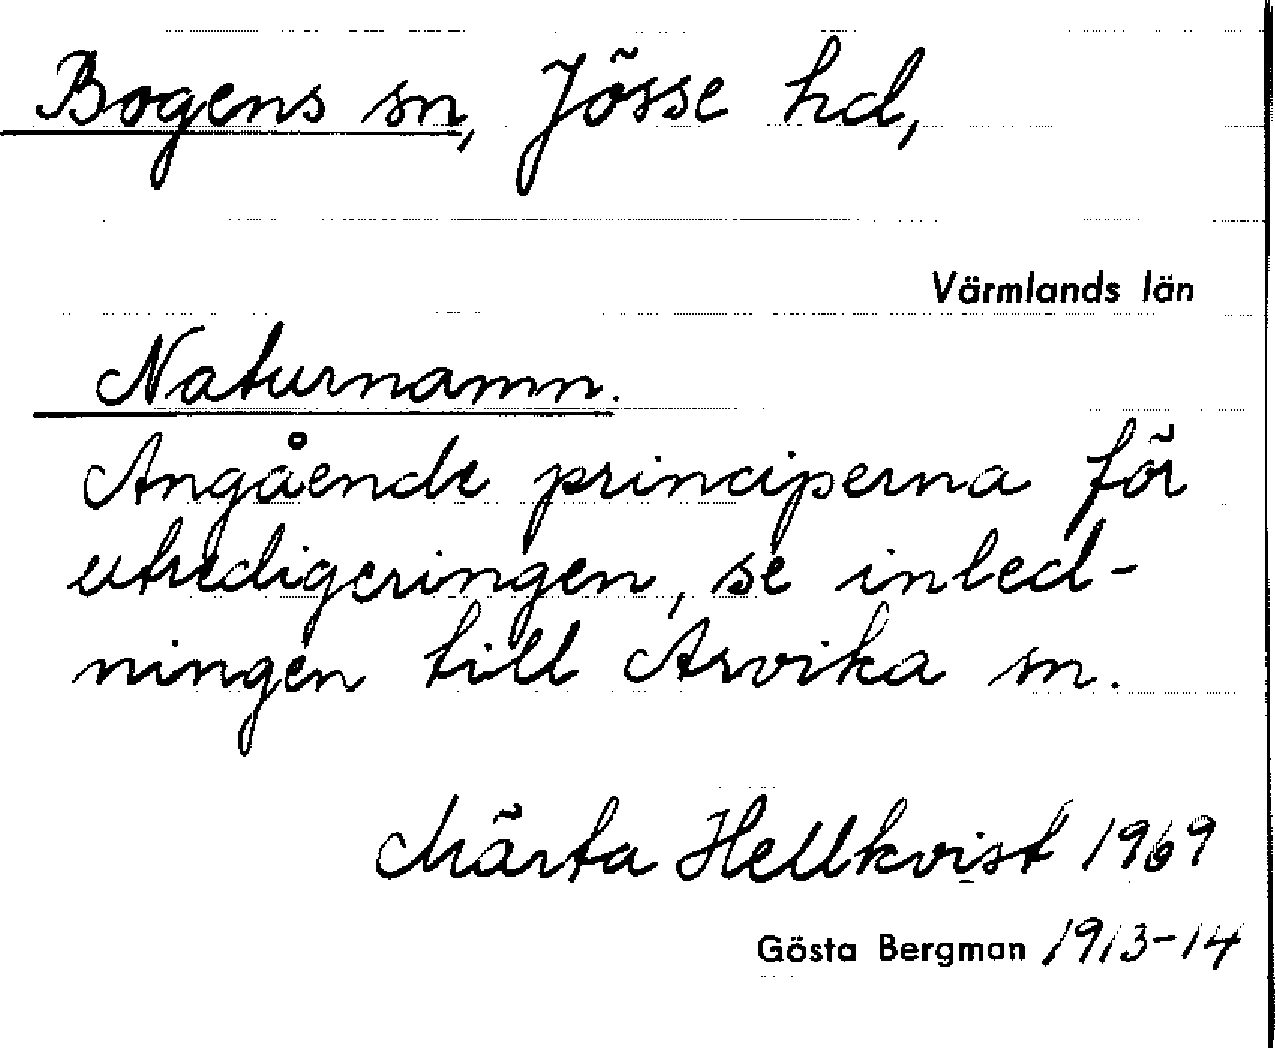 Bogens sn, Jösse hd,
Värmlands län
Naturnamn.
Angående principerna för
utredigeringen, se inled-
ningen till Arvika sn.
Märta Hellkvist 1969
Gösta Bergman 1913-14